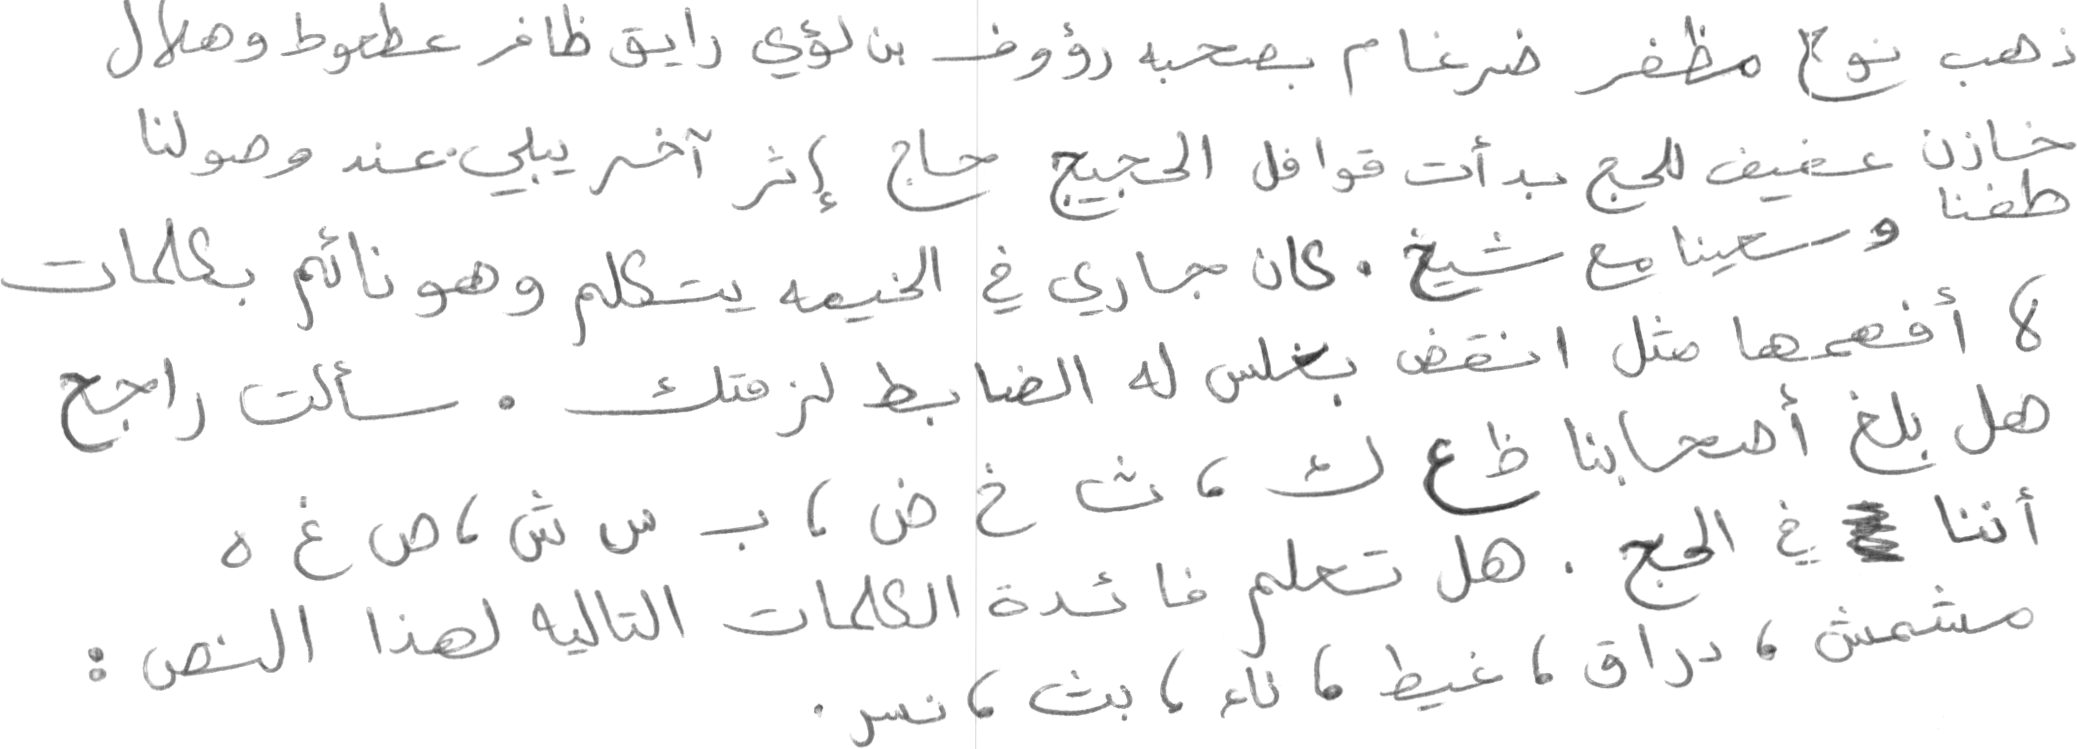 ذهب نوح مظفر ضرغام بصحبه رؤوف بن لؤي رايق ظافر عطعوط وهلال
خازن عفيف للحج بدأت قوافل الحجيج حاج إثر آخر يبلي. عند وصولنا
طفنا وسعينا مع شيخ . كان جاري في الخيمه يتكلم وهو نائم بكلمات
لا أفهمها مثل انقض بغلس له الضابط لزقتك . سألت راجح
هل بلغ أصحابنا ظ ع ك ، ث خ ض ، ب س ش ، ص غ ه
أننا في الحج . هل تعلم فائدة الكلمات التاليه لهذا النص :
مشمش ، دراق ، غيظ ، ناء ، بث ، نسر .